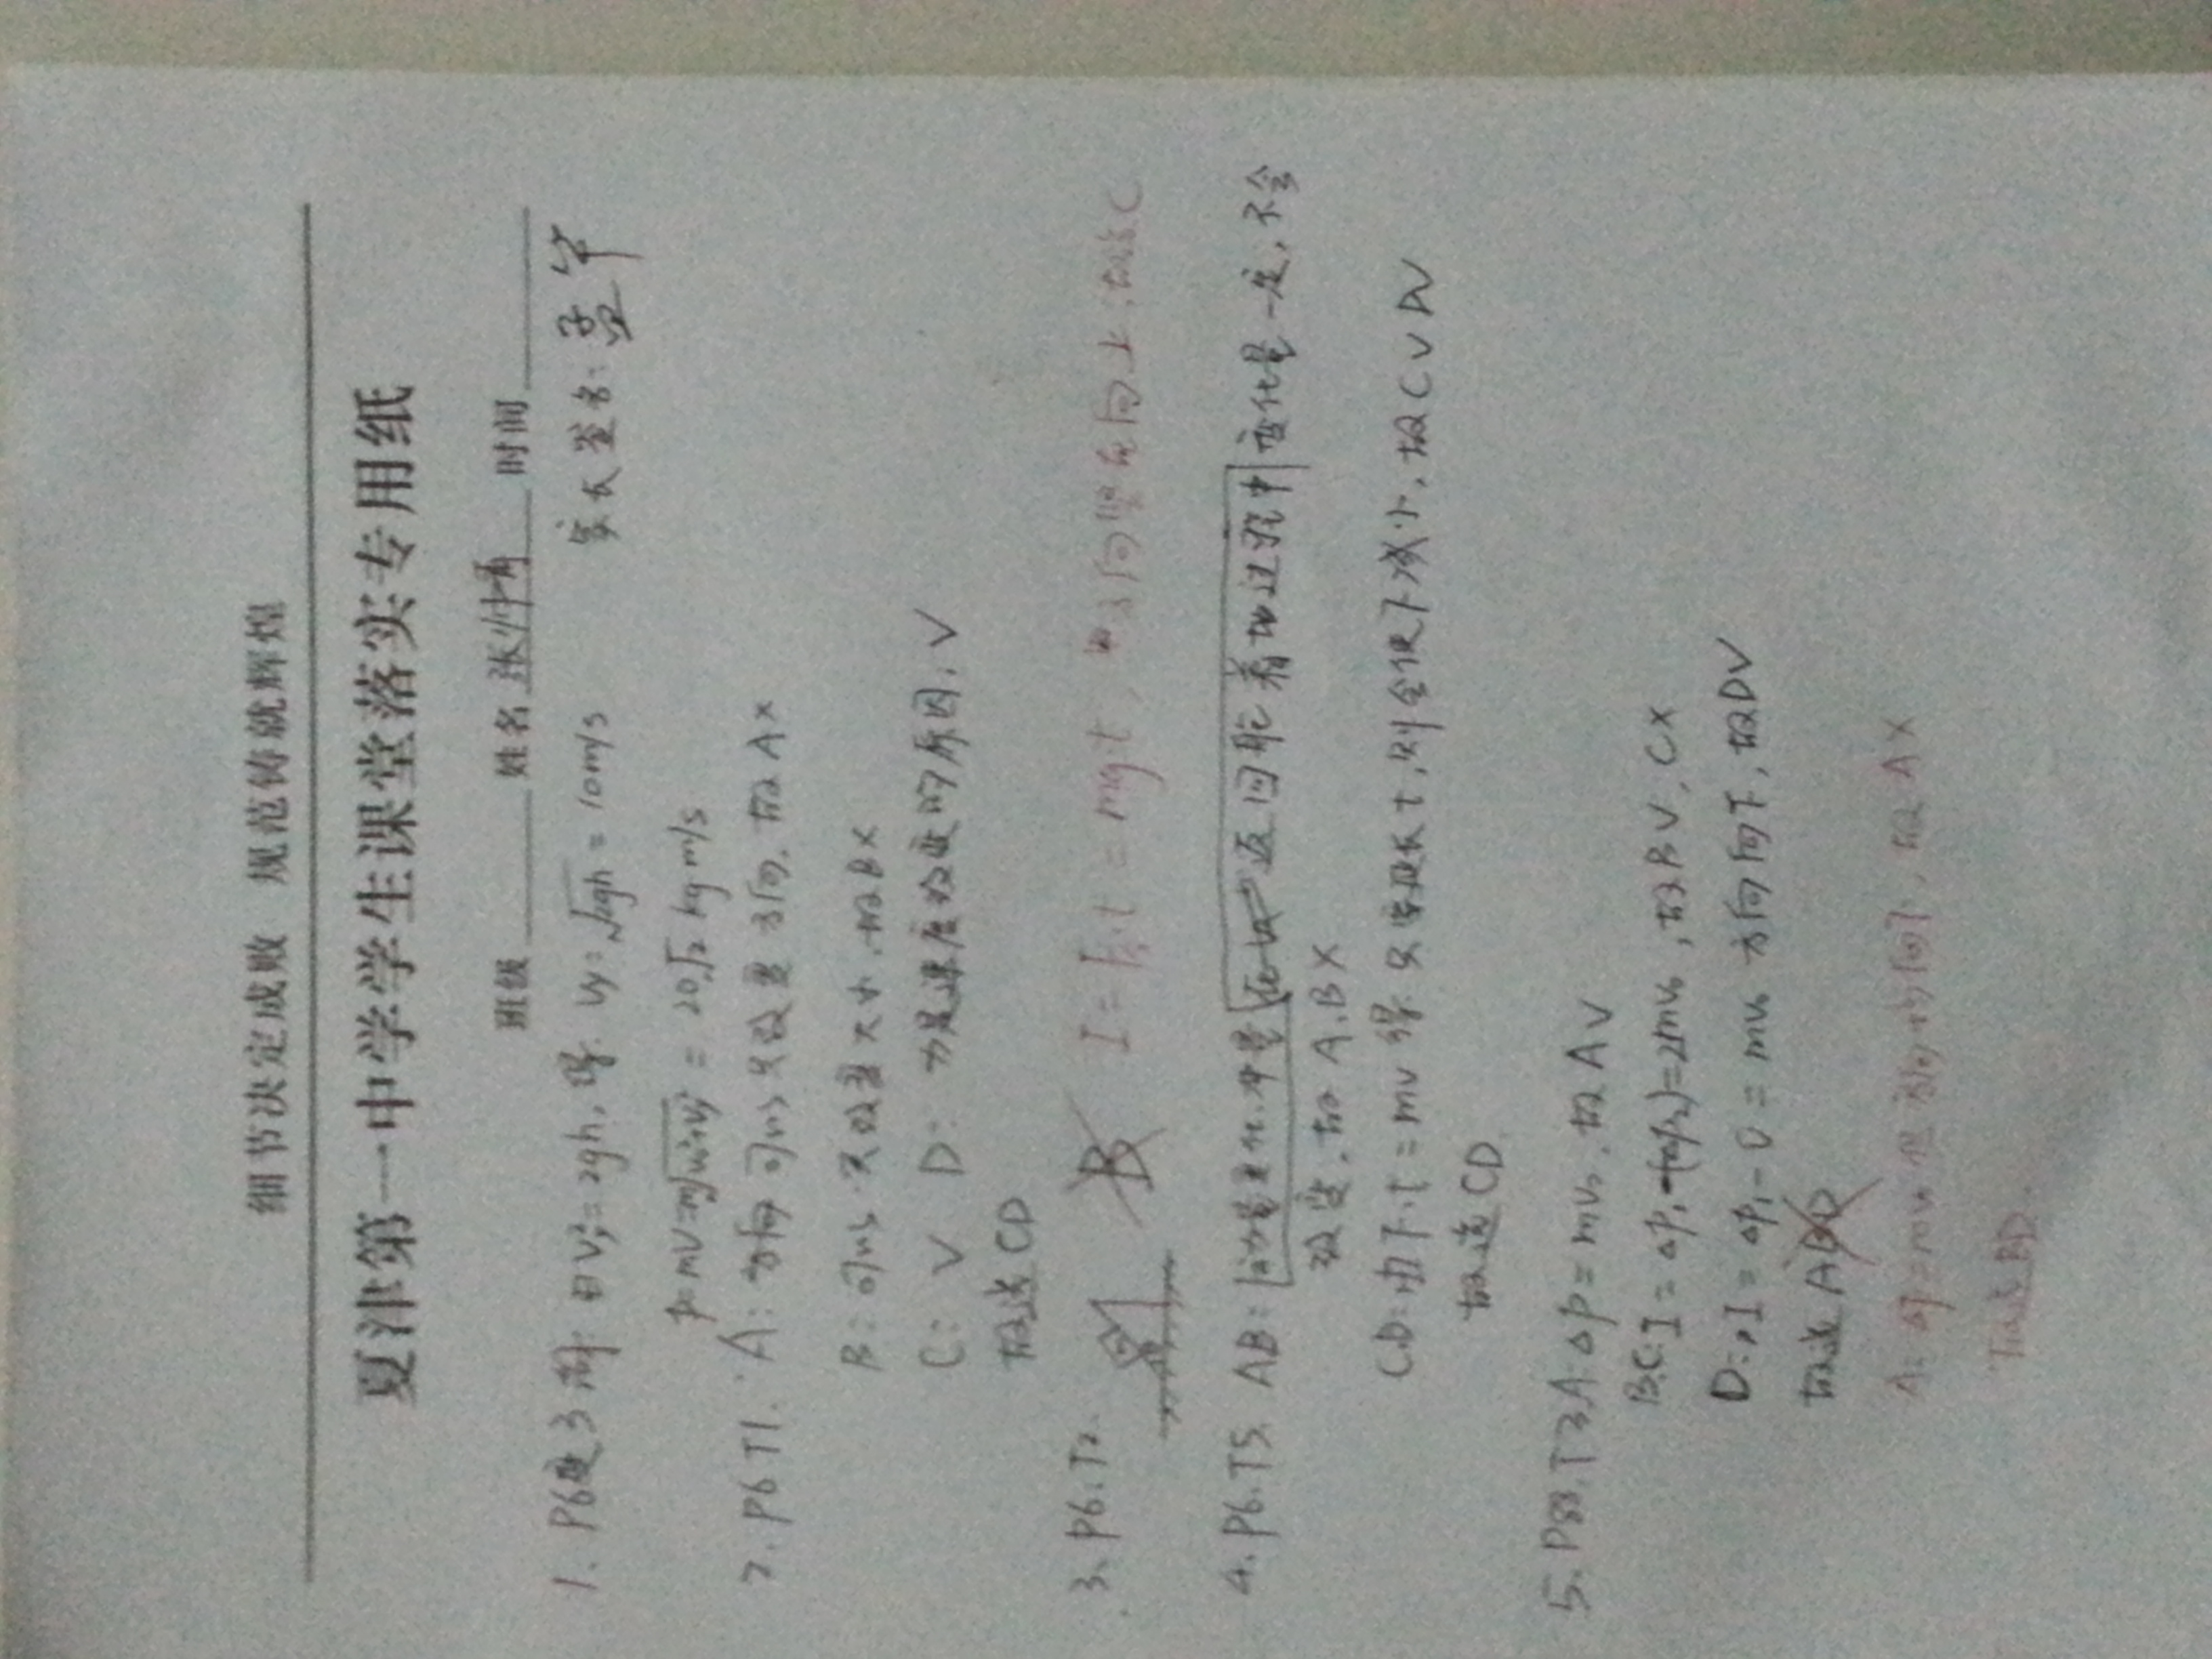 细节决定成败 规范铸就辉煌
夏津第一中学学生课堂落实专用纸
班级 姓名 张帅甫 时间
家长签名: 孟军
1. P6变3 解 由Vy²=2gh, 得. Vy=√2gh = 10m/s
p=mV=m√v0²+vy² = 20√2 kg m/s
2. P6 T1. A: 方向 可以只改变方向. 故A×
B: 可以只改变大小, 故B×
C: V D: 力是速度改变的原因, V
故选CD
3. P6. T2. B I=F合t = mgt, 方向竖直向上, 故选C
4. P6. T5. AB: 动量变化.冲量 在 返回脱着地过程中 变化量一定, 不会
改变, 故A.B×
C.D: 由F.t = mv 得. 只要延长t, 则会使F减小, 故C V D V
故选CD
5. P88. T3 A: Δp = mv0, 故A V
B.C: I = Δp1-(-Δp2)=2mv0, 故B V, C×
D: I = Δp1 - 0 = mv0 方向向下, 故D V
故选ABD
A: Δp=mv0 但方向 , 故A×
故选BD.